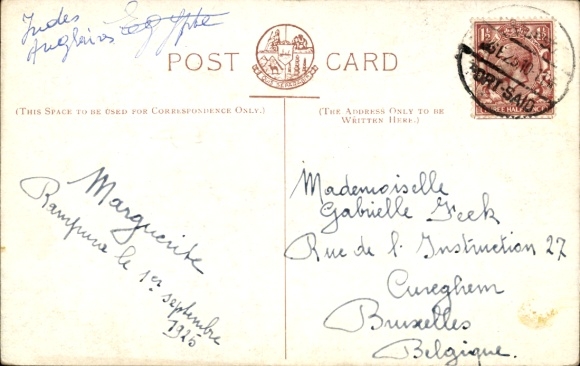 Indes
Anglaises Egypte
POST CARD
(THIS SPACE TO BE USED FOR CORRESPONDENCE ONLY.)
(THE ADDRESS ONLY TO BE
WRITTEN HERE.)
Marguerite
Rampura le 1er septembre
1925
Mademoiselle
Gabrielle Feek
Rue de l'Instruction 27
Cureghem
Bruxelles
Belgique.
PORT-SAID